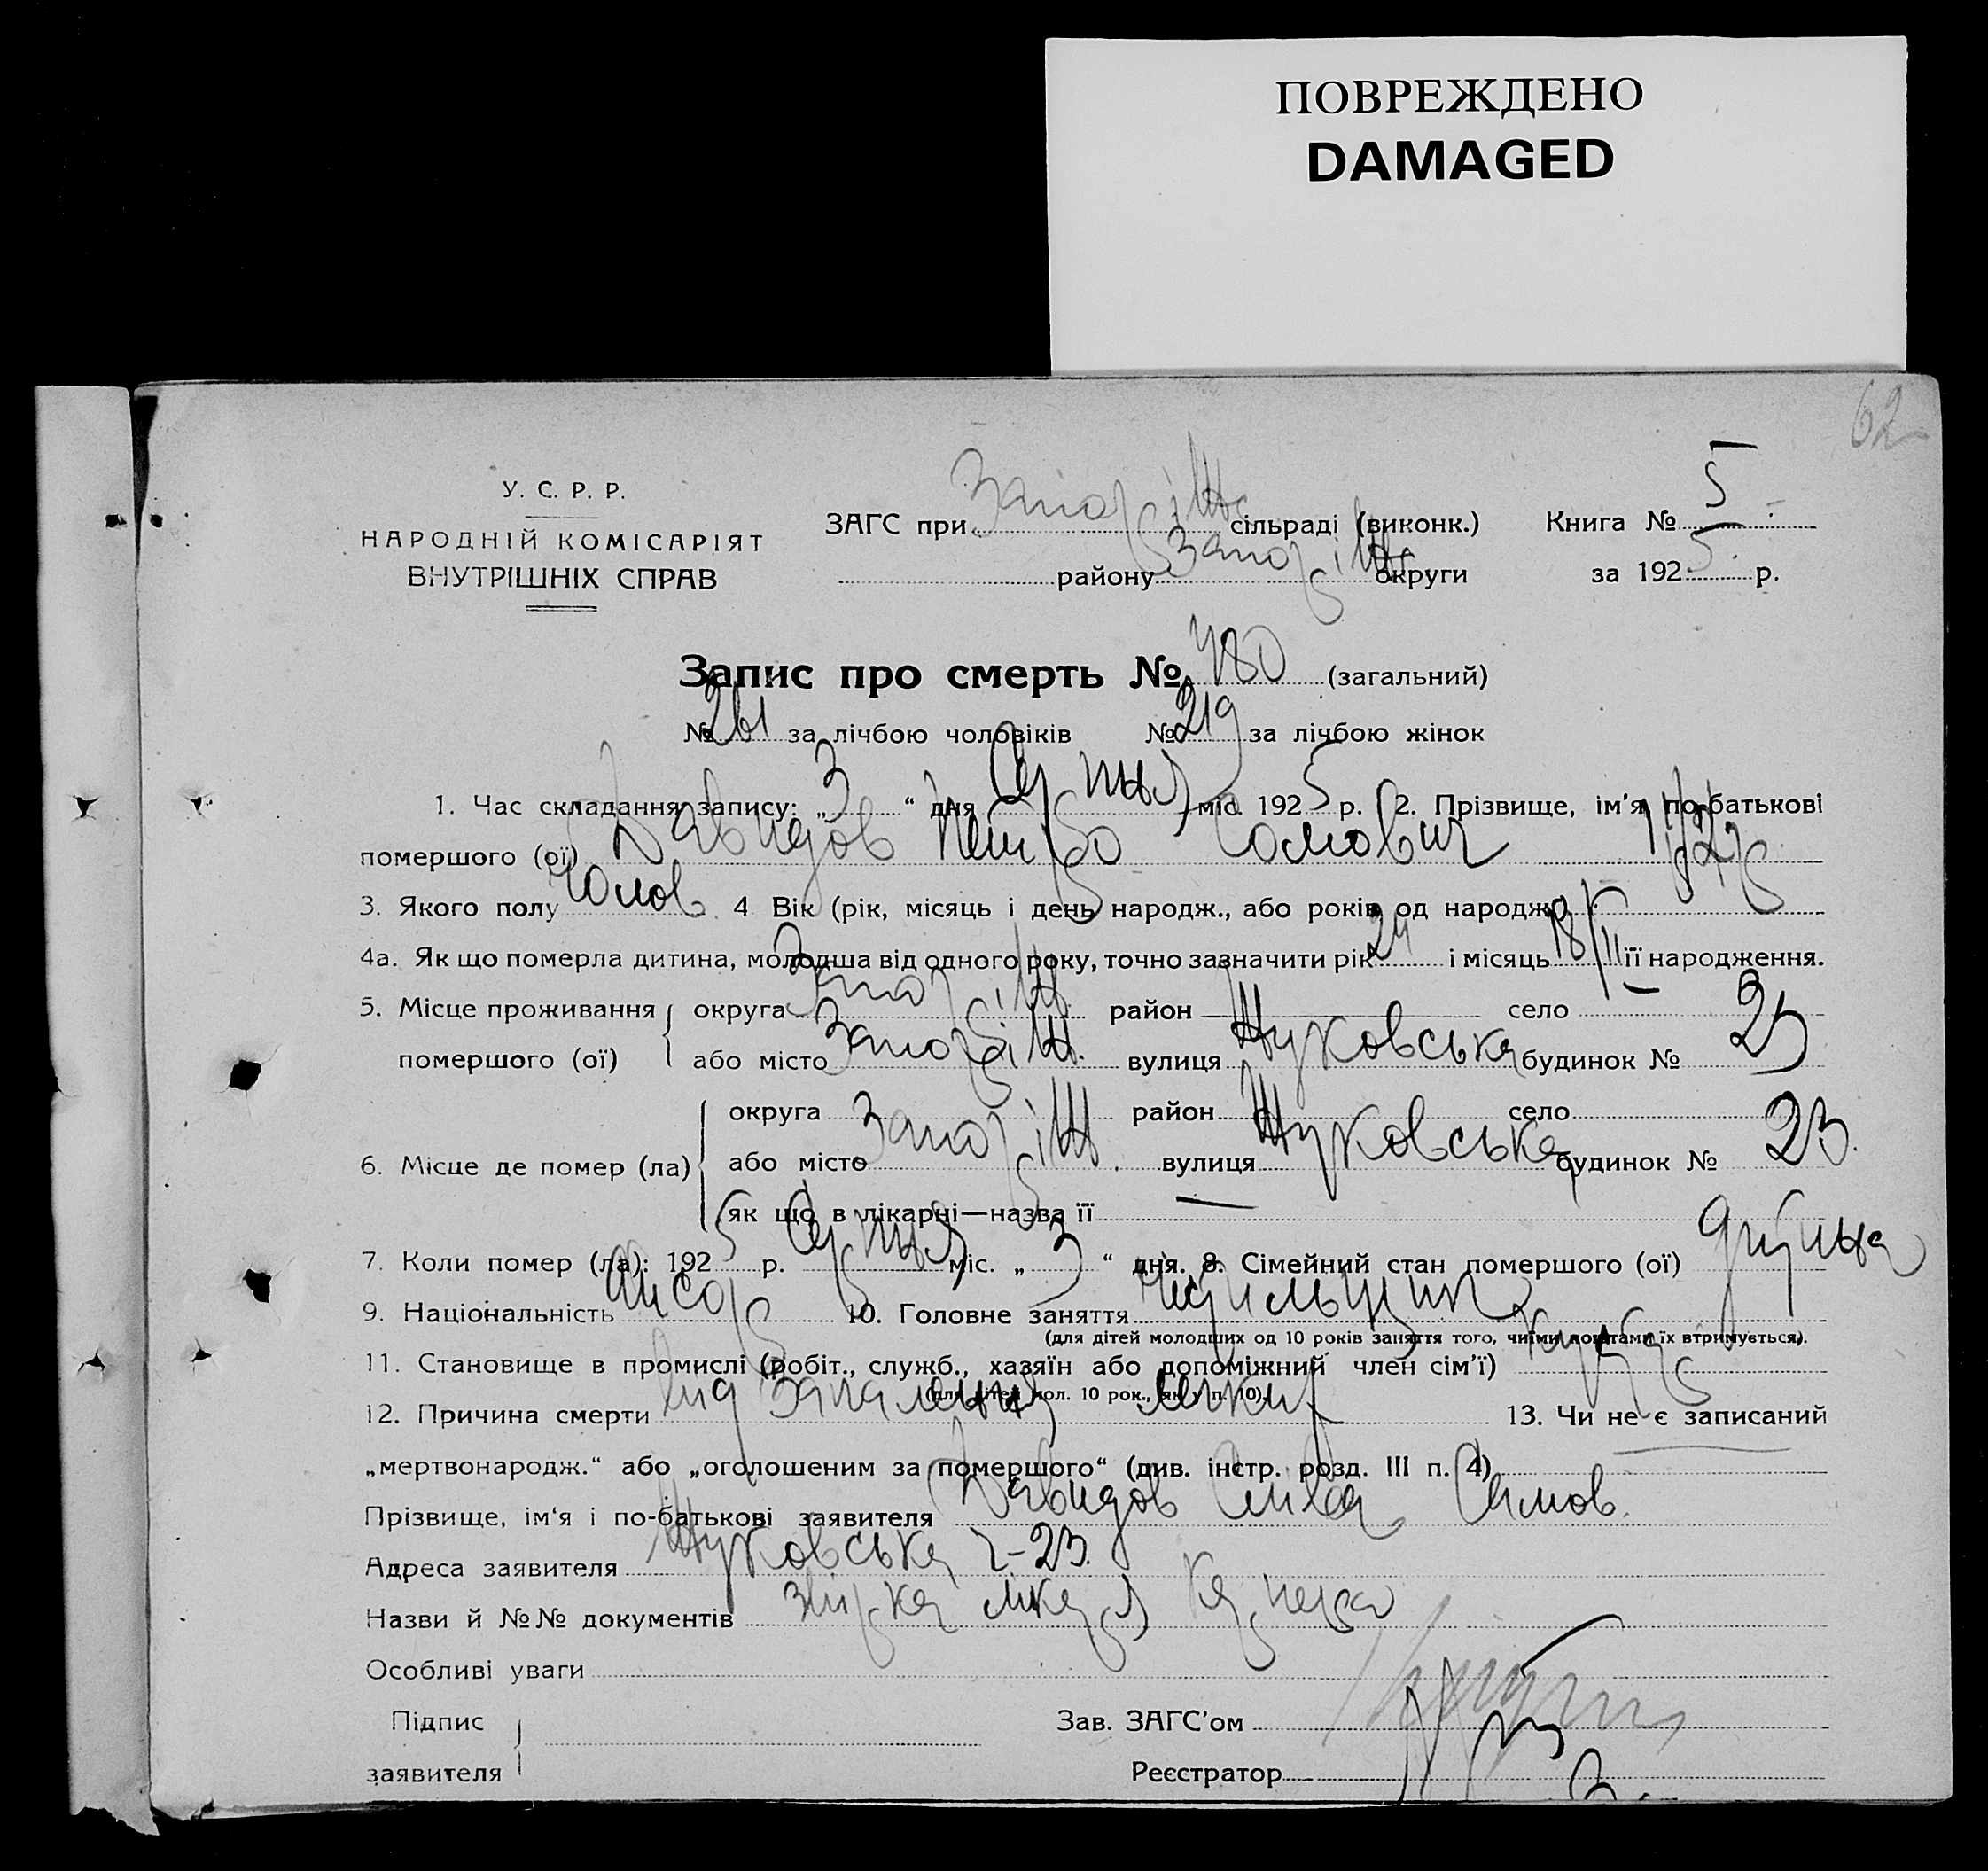 ПОВРЕЖДЕНО
DAMAGED
62
У. С. Р. Р.
НАРОДНІЙ КОМІСАРІЯТ
ВНУТРІШНІХ СПРАВ
ЗАГС при Запоріж сільраді (виконк.) Книга № 5
району Запоріж округи за 192 5 р.
Запис про смерть № 480 (загальний)
№ 261 за лічбою чоловіків № 219 за лічбою жінок
1. Час складання запису: „ 3 “ дня Серпня міс. 192 5 р. 2. Прізвище, ім'я, по-батькові
помершого (ої) Давидов Петро
3. Якого полу Чолов 4 Вік (рік, місяць і день народж., або років од народж.)
4а. Як що померла дитина, молодша від одного року, точно зазначити рік 24 і місяць 18/II її народження.
5. Місце проживання округа Запоріж район село
помершого (ої) або місто Запоріж. вулиця Жуковська будинок № 23
округа Запоріж район село
6. Місце де помер (ла) або місто вулиця Жуковська будинок № 23.
як що в лікарні—назва її —
7. Коли помер (ла): 192 5 р. Серпня міс. „ 3 “ дня. 8. Сімейний стан помершого (ої)
9. Національність 10. Головне заняття
(для дітей молодших од 10 років заняття того, чиїми коштами їх втримується).
11. Становище в промислі (робіт., служб., хазяїн або допоміжний член сім'ї)
(для дітей мол. 10 рок., як у п. 10).
12. Причина смерти від запалення 13. Чи не є записаний
„мертвонародж.“ або „оголошеним за помершого“ (див. інстр. розд. III п. 4)
Прізвище, ім'я і по-батькові заявителя Давидов Самов.
Адреса заявителя Жуковська ч-23.
Назви й №№ документів
Особливі уваги
Підпис Зав. ЗАГС'ом
заявителя Реєстратор